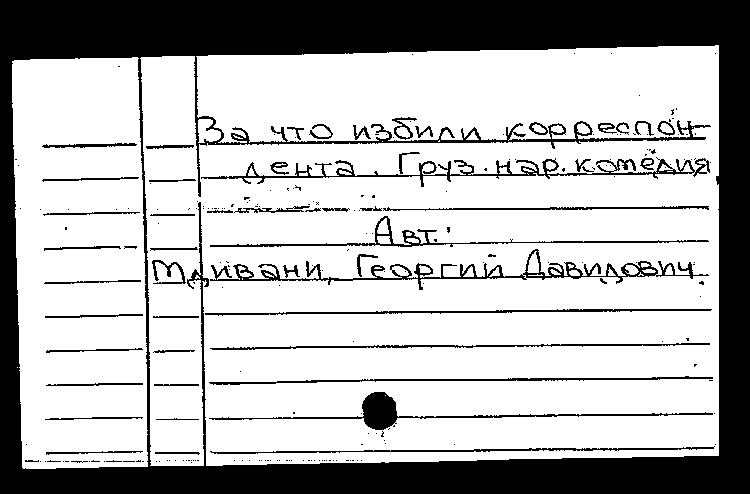 За что избили корреспон-
дента. Груз. нар. комедия
Авт.:
Мдивани, Георгий Давидович.